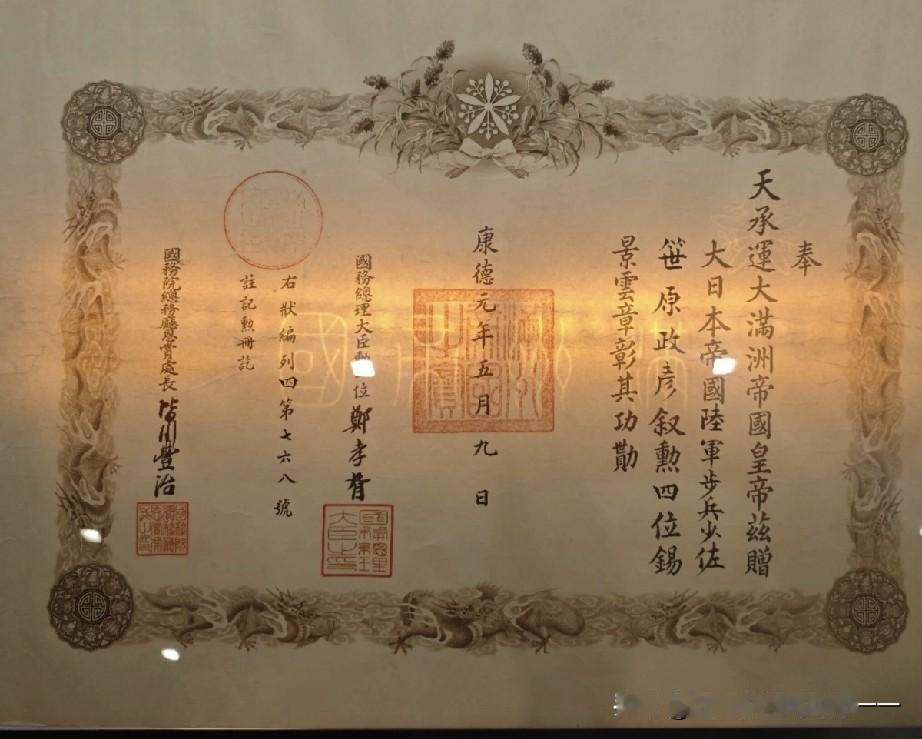 奉
天承運大滿洲帝國皇帝茲贈
大日本帝國陸軍步兵少佐
笹原政彥叙勲四位錫
景雲章彰其功勛
康德元年五月九日
國務總理大臣勲位鄭孝胥
右狀編列四第七六八號
註記勲冊訖
國務院總務廳恩賞處長皆川豐治